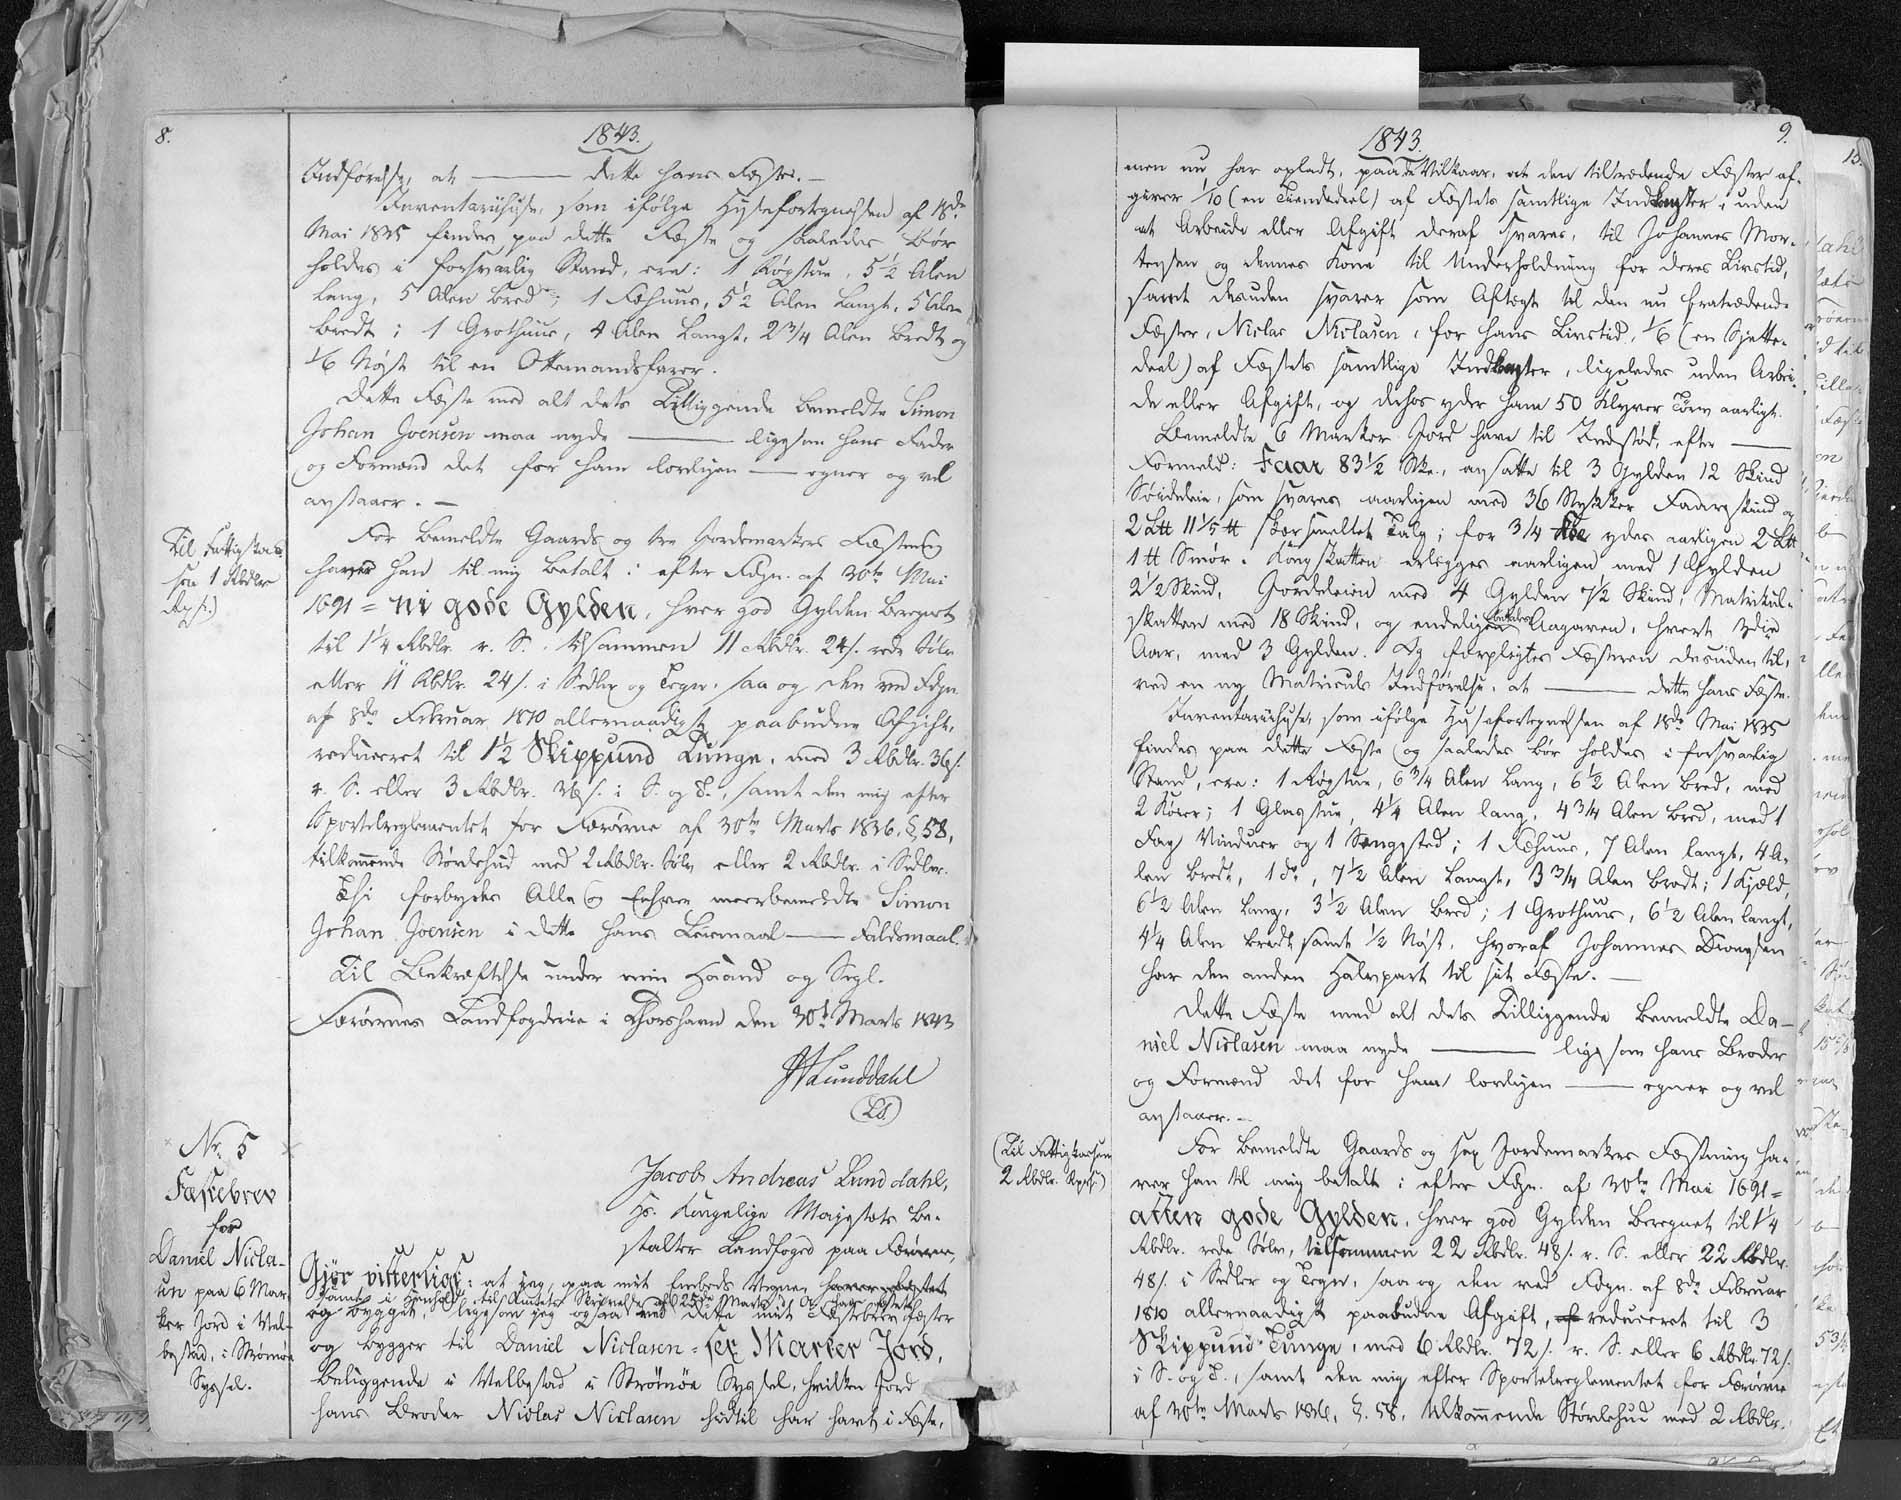 8.
1843.
Indførelse, at — dette hans Fæste. —
Inventariihuse, som ifølge Husefortegnelsen af 18de
Mai 1835 findes paa dette Fæste og saaledes bør
holdes i forsvarlig Stand, ere: 1 Røgstue, 5½ Alen
lang, 5 Alen bred; 1 Fæhuus, 5½ Alen langt, 5 Alen
bredt; 1 Grothuus, 4 Alen langt, 2 3/4 Alen bredt og
1/6 Nøst til en Ottemandsfarer.
Dette Fæste med alt dets Tilliggende bemeldte Simon
Johan Joensen maa nyde — ligesom hans Fader
og Formand det før ham lovligen — egner og vel
anstaaer. —
Til Fattigkas-
sen 1 Rbdlr
For bemeldte Gaards og tre Jordemarkers Fæstning
haver han til mig betalt: efter Fdgn. af 30te Mai
1691 = ni gode Gylden, hver god Gylden beregnet
til 1¼ Rbdlr. r. S., tilsammen 11 Rbdlr. 24 s. rede Sølv
eller 11 Rbdlr. 24 s. i Sedler og Tegn, saa og den ved Fdgn.
af 8de Februar 1810 allernaadigst paabudne Afgift,
reduceret til 1½ Skippund Tunge, med 3 Rbdlr. 36 s.
r. S. eller 3 Rbdlr. 36 s. i S. og T., samt den mig efter
Sportelreglementet for Færøerne af 30te Marts 1836, §. 58,
tilkommende Størdehud med 2 Rbdlr. Sølv eller 2 Rbdlr. i Sedler.
Thi forbydes Alle og Enhver meerbemeldte Simon
Johan Joensen i dette hans Leiemaal — Faldsmaal.
Til Bekræftelse under min Haand og Segl.
Færøernes Landfogderie i Thorshavn den 30te Marts 1843
JALunddahl
(LS)
Nr. 5
Fæstebrev
for
Daniel Nicla-
sen paa 6 Mar-
ker Jord i Vel-
bestad, i Strømøe
Syssel.
Jacob Andreas Lunddahl,
Hs. Kongelige Majestæts be-
stalter Landfoged paa Færøerne,
Gjør vitterligt: at jeg, paa mit Embeds Vegne, haver fæstet
samt i Henhold til Amtets Skrivelse af 25de Marts
og bygget, ligesom jeg ogsaa ved dette mit Fæstebrev fæster
og bygger til Daniel Niclasen = sex Marker Jord,
beliggende i Velbestad i Strømøe Syssel, hvilken Jord
hans Broder Niclas Niclasen hidtil har havt i Fæste,
9.
1843.
men nu har opladt, paa de Vilkaar, at den tiltrædende Fæster af-
giver 1/10 (en Tiendedeel) af Fæstets samtlige Indkomster, uden
at Arbeide eller Afgift deraf svares, til Johannes Mor-
tensen og dennes Kone til Underholdning for deres Livstid,
samt desuden svarer som Aftægt til den nu fratrædende
Fæster, Niclas Niclasen, for hans Livstid, 1/6 (en Sjette-
deel) af Fæstets samtlige Indkomster, ligeledes uden Arbei-
de eller Afgift, og derhos yder ham 50 Klyver Tørv aarligt.
Bemeldte 6 Marker Jord have til Indstød, efter —
Formeld: Faar 83½ Stke., ansatte til 3 Gylden 12 Skind
Søideleie, som svares aarligen med 36 Stykker Faareskind og
2 L℔ 11 1/5 ℔ skærsmeltet Talg; for 3/4 Koe ydes aarligen 2 L℔
1 ℔ Smør. Kongsskatten erlægges aarligen med 1 Gylden
2½ Skind, Jordeleien med 4 Gylden 7½ Skind, Matrikul-
skatten med 18 Skind, og endeligen betales Aagaven, hvert 3die
Aar, med 3 Gylden. Og forpligtes Fæsteren desuden til,
ved en ny Matriculs Indførelse, at — dette hans Fæste.
Inventariihuse, som ifølge Husefortegnelsen af 18de Mai 1835
findes paa dette Fæste og saaledes bør holdes i forsvarlig
Stand, ere: 1 Røgstue, 6 3/4 Alen lang, 6½ Alen bred, med
2 Køier; 1 Glasstue, 4¼ Alen lang, 4 3/4 Alen bred, med 1
Fag Vinduer og 1 Sengested; 1 Fæhuus, 7 Alen langt, 4 A-
len bredt, 1 do, 7½ Alen langt, 3 3/4 Alen bredt; 1 Kjæld,
6½ Alen lang, 3½ Alen bred; 1 Grothuus, 6½ Alen langt,
4¼ Alen bredt samt ½ Nøst, hvoraf Johannes Dionysen
har den anden Halvpart til sit Fæste. —
Dette Fæste med alt dets Tilliggende bemeldte Da-
niel Niclasen maa nyde — ligesom hans Broder
og Formand det før ham lovligen — egner og vel
anstaaer. —
(Til Fattigkassen
2 Rbdlr.
For bemeldte Gaards og sex Jordemarkers Fæstning ha-
ver han til mig betalt: efter Fdgn. af 30te Mai 1691 =
atten gode Gylden, hver god Gylden beregnet til 1¼
Rbdlr. rede Sølv, tilsammen 22 Rbdlr. 48 s. r. S. eller 22 Rbdlr.
48 s. i Sedler og Tegn, saa og den ved Fdgn. af 8de Februar
1810 allernaadigst paabudne Afgift, reduceret til 3
Skippund Tunge, med 6 Rbdlr. 72 s. r. S. eller 6 Rbdlr. 72 s.
i S. og T., samt den mig efter Sportelreglementet for Færøerne
af 30te Marts 1836, §. 58, tilkommende Størdehud med 2 Rbdlr.